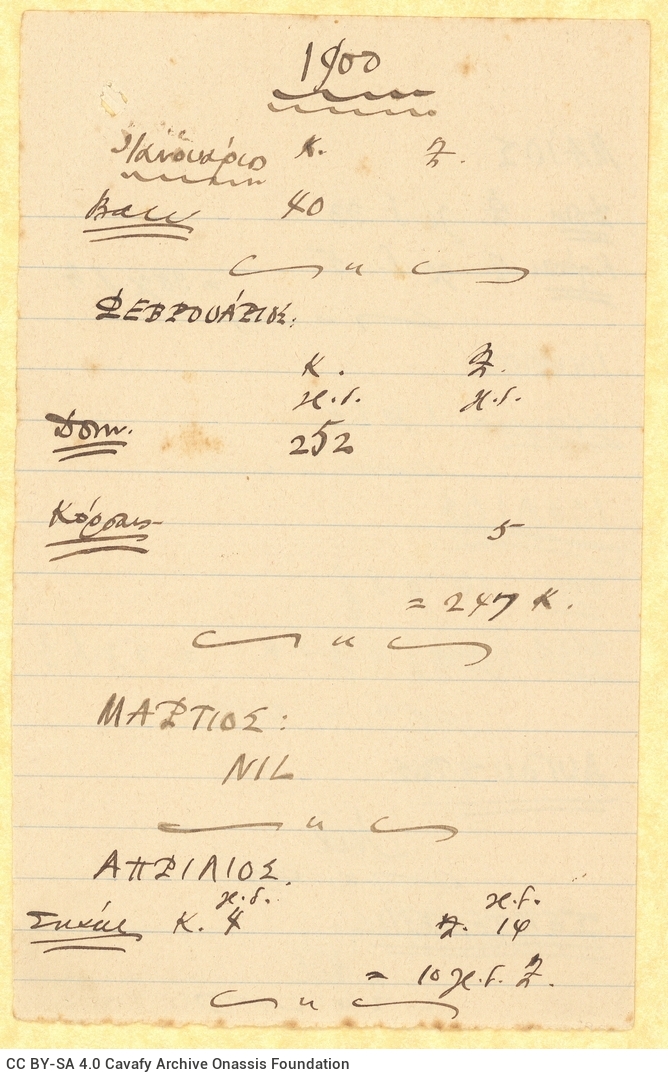 1900
Ιανουάριο Κ. Ζ.
Βαλλ 40
〃
ΦΕΒΡΟΥΑΡΙΟΣ:
Κ. Ζ.
γ.δ. γ.δ.
Dom. 252
Κόρσαι 5
= 247 Κ.
〃
ΜΑΡΤΙΟΣ:
NIL
〃
ΑΠΡΙΛΙΟΣ.
γ.δ. γ.δ.
Κ. 4 Ζ. 14
= 10 γ.δ. Ζ.
〃
CC BY-SA 4.0 Cavafy Archive Onassis Foundation